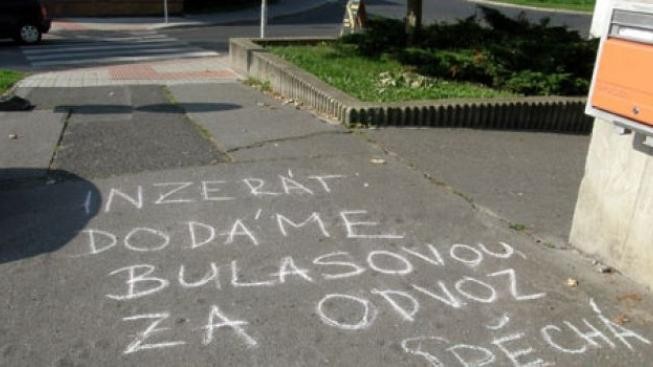 INZERÁT.
DODÁME
BULASOVOU
ZA ODVOZ
SPĚCHÁ